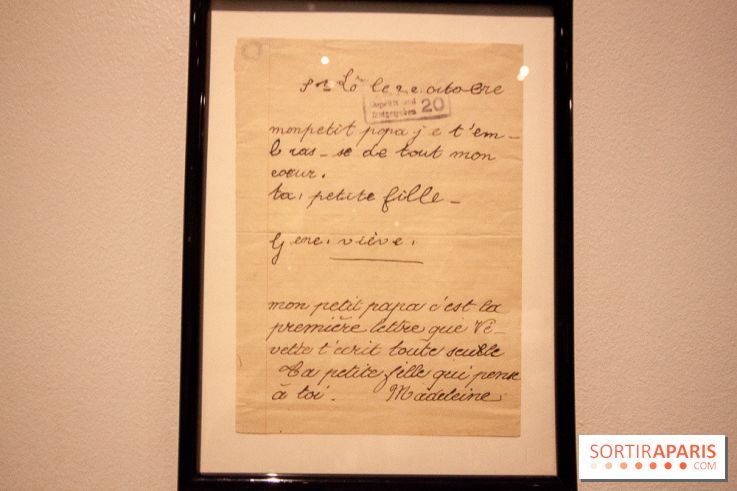 St Lô le 22 octobre
Geprüft und 20
freigegeben
mon petit papa je t'em-
bras-se de tout mon
coeur.
ta, petite fille-
Gene, viève,
mon petit papa c'est la
première lettre que Ve-
vette t'écrit toute seule
Ta petite fille qui pense
à toi. Madeleine
SORTIRAPARIS
.COM